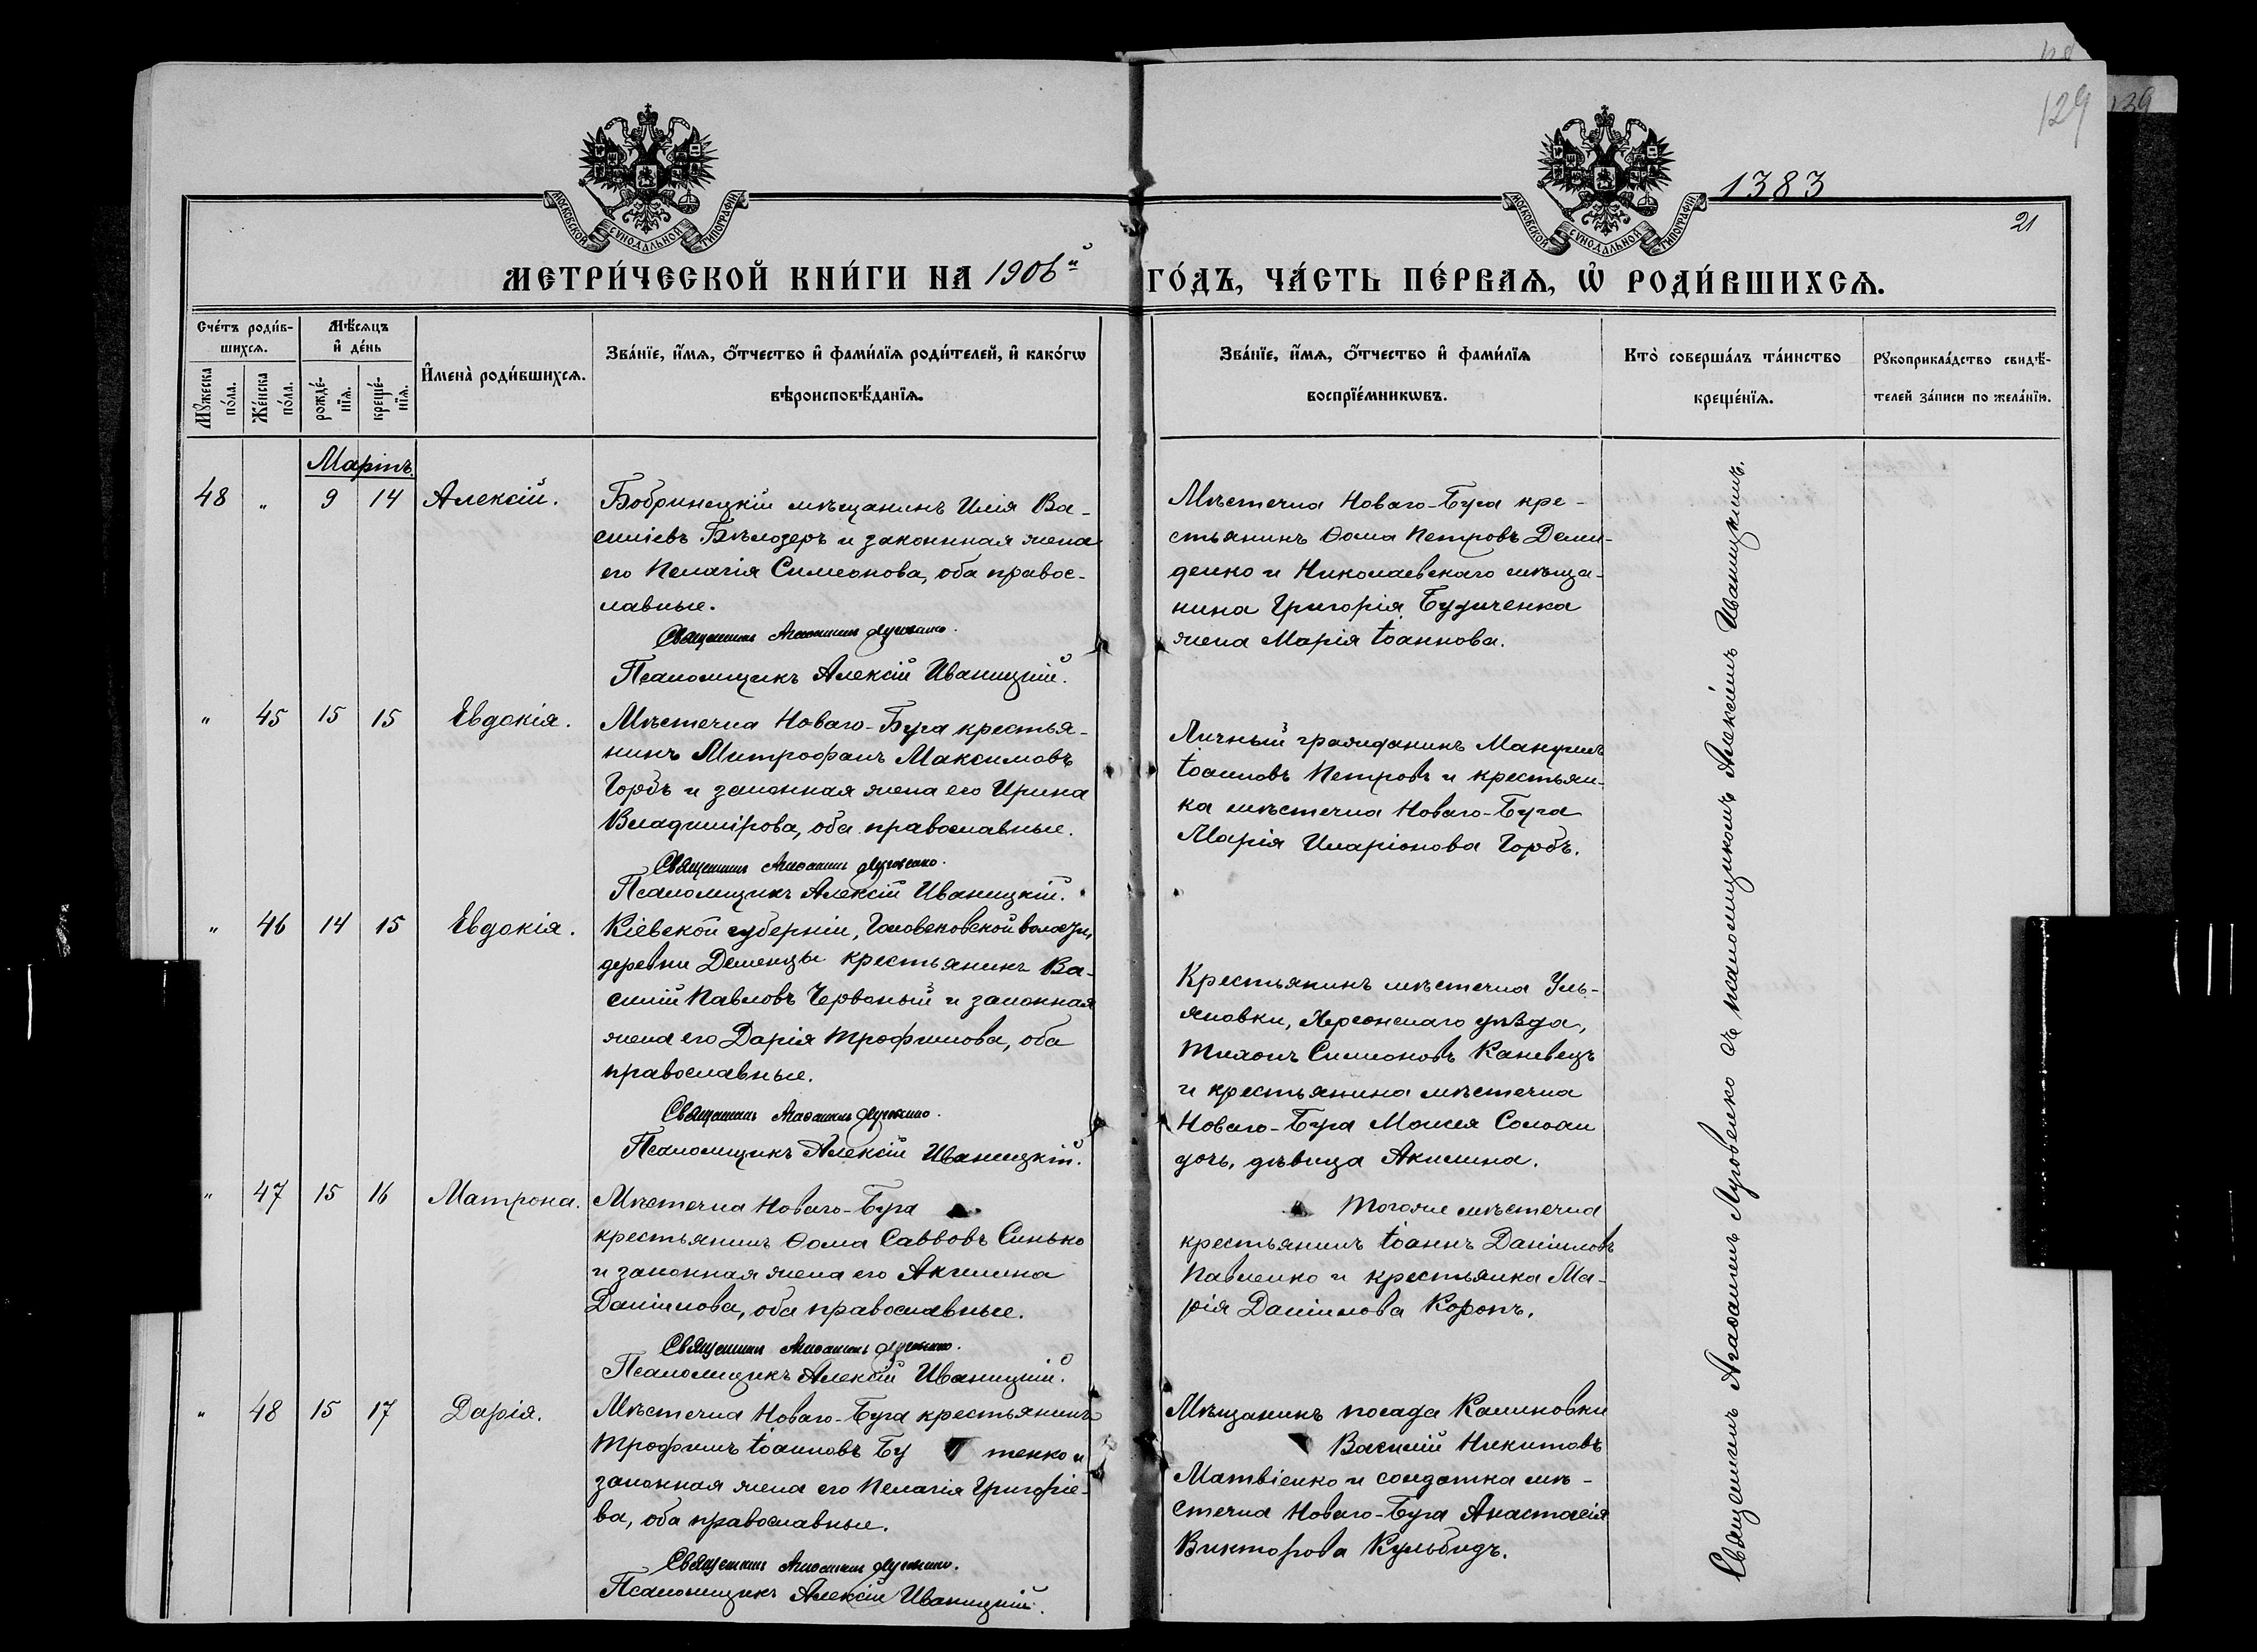 129
139
1383
21
МОСКОВСКОЙ СѴНОДАЛЬНОЙ ТИПОГРАФІИ
МОСКОВСКОЙ СѴНОДАЛЬНОЙ ТИПОГРАФІИ
МЕТРИ́ЧЕСКОЙ КНИ́ГИ НА 1906й ГО́ДЪ, ЧА́СТЬ ПЕ́РВАѦ, Ѡ҆ РОДИ́ВШИХСѦ.
Сче́тъ роди́в-
шихсѧ.
Мꙋ́жеска по́ла.
Же́нска по́ла.
Мѣ́сѧцъ
и҆ де́нь
рожде́-
нїѧ.
креще́-
нїѧ.
И҆мена̀ роди́вшихсѧ.
Зва́нїе, и҆́мѧ, ѻ҆́тчество и҆ фами́лїѧ роди́телей, и҆ како́гѡ
вѣроисповѣ́данїѧ.
Зва́нїе, и҆́мѧ, ѻ҆́тчество и҆ фами́лїѧ
воспрїе́мникѡвъ.
Кто̀ соверша́лъ та́инство
креще́нїѧ.
Рꙋкоприкла́дство свидѣ́-
телей за́писи по жела́нїю.
Мартъ.
48 " 9 14 Алексій.
Бобринецкій мѣщанинъ Илія Ва-
силіевъ Бѣлозеръ и законная жена
его Пелагія Симеонова, оба правос-
лавные.
Священникъ Агаѳангелъ Луговенко.
Псаломщикъ Алексій Иваницкій.
Мѣстечка Новаго-Буга кре-
стьянинъ Ѳома Петровъ Деми-
денко и Николаевскаго мѣща-
нина Григорія Будиченка
жена Марія Іоаннова.
" 45 15 15 Евдокія.
Мѣстечка Новаго-Буга крестья-
нинъ Митрофанъ Максимовъ
Горбъ и законная жена его Ирина
Владимірова, оба православные.
Священникъ Агаѳангелъ Луговенко.
Псаломщикъ Алексій Иваницкій.
Личный гражданинъ Мануилъ
Іоанновъ Петровъ и крестьян-
ка мѣстечка Новаго-Буга
Марія Иларіонова Горбъ.
" 46 14 15 Евдокія.
Кіевской губерніи, Головковской волости,
деревни Деменцы крестьянинъ Ва-
силій Павловъ Червоный и законная
жена его Дарія Трофимова, оба
православные.
Священникъ Агаѳангелъ Луговенко.
Псаломщикъ Алексій Иваницкій.
Крестьянинъ мѣстечка Уль-
яновки, Херсонскаго уѣзда,
Тихонъ Симоновъ Каневецъ
и крестьянина мѣстечка
Новаго-Буга Моисея
дочь, дѣвица Акилина.
" 47 15 16 Матрона.
Мѣстечка Новаго-Буга
крестьянинъ Ѳома Саввовъ Синько
и законная жена его Акилина
Даніилова, оба православные.
Священникъ Агаѳангелъ Луговенко.
Псаломщикъ Алексій Иваницкій.
Тогоже мѣстечка
крестьянинъ Іоаннъ Даніиловъ
Павленко и крестьянка Ма-
рія Даніилова Коропъ.
" 48 15 17 Дарія.
Мѣстечка Новаго-Буга крестьянинъ
Трофимъ Іоанновъ Бу тенко и
законная жена его Пелагія Григоріе-
ва, оба православные.
Священникъ Агаѳангелъ Луговенко.
Псаломщикъ Алексій Иваницкій.
Мѣщанинъ посада Калиновки
Василій Никитовъ
Матвіенко и солдатка мѣ-
стечка Новаго-Буга Анастасія
Викторова Кульбидъ.
Священникъ Агаѳангелъ Луговенко съ псаломщикомъ Алексіемъ Иваницкимъ.